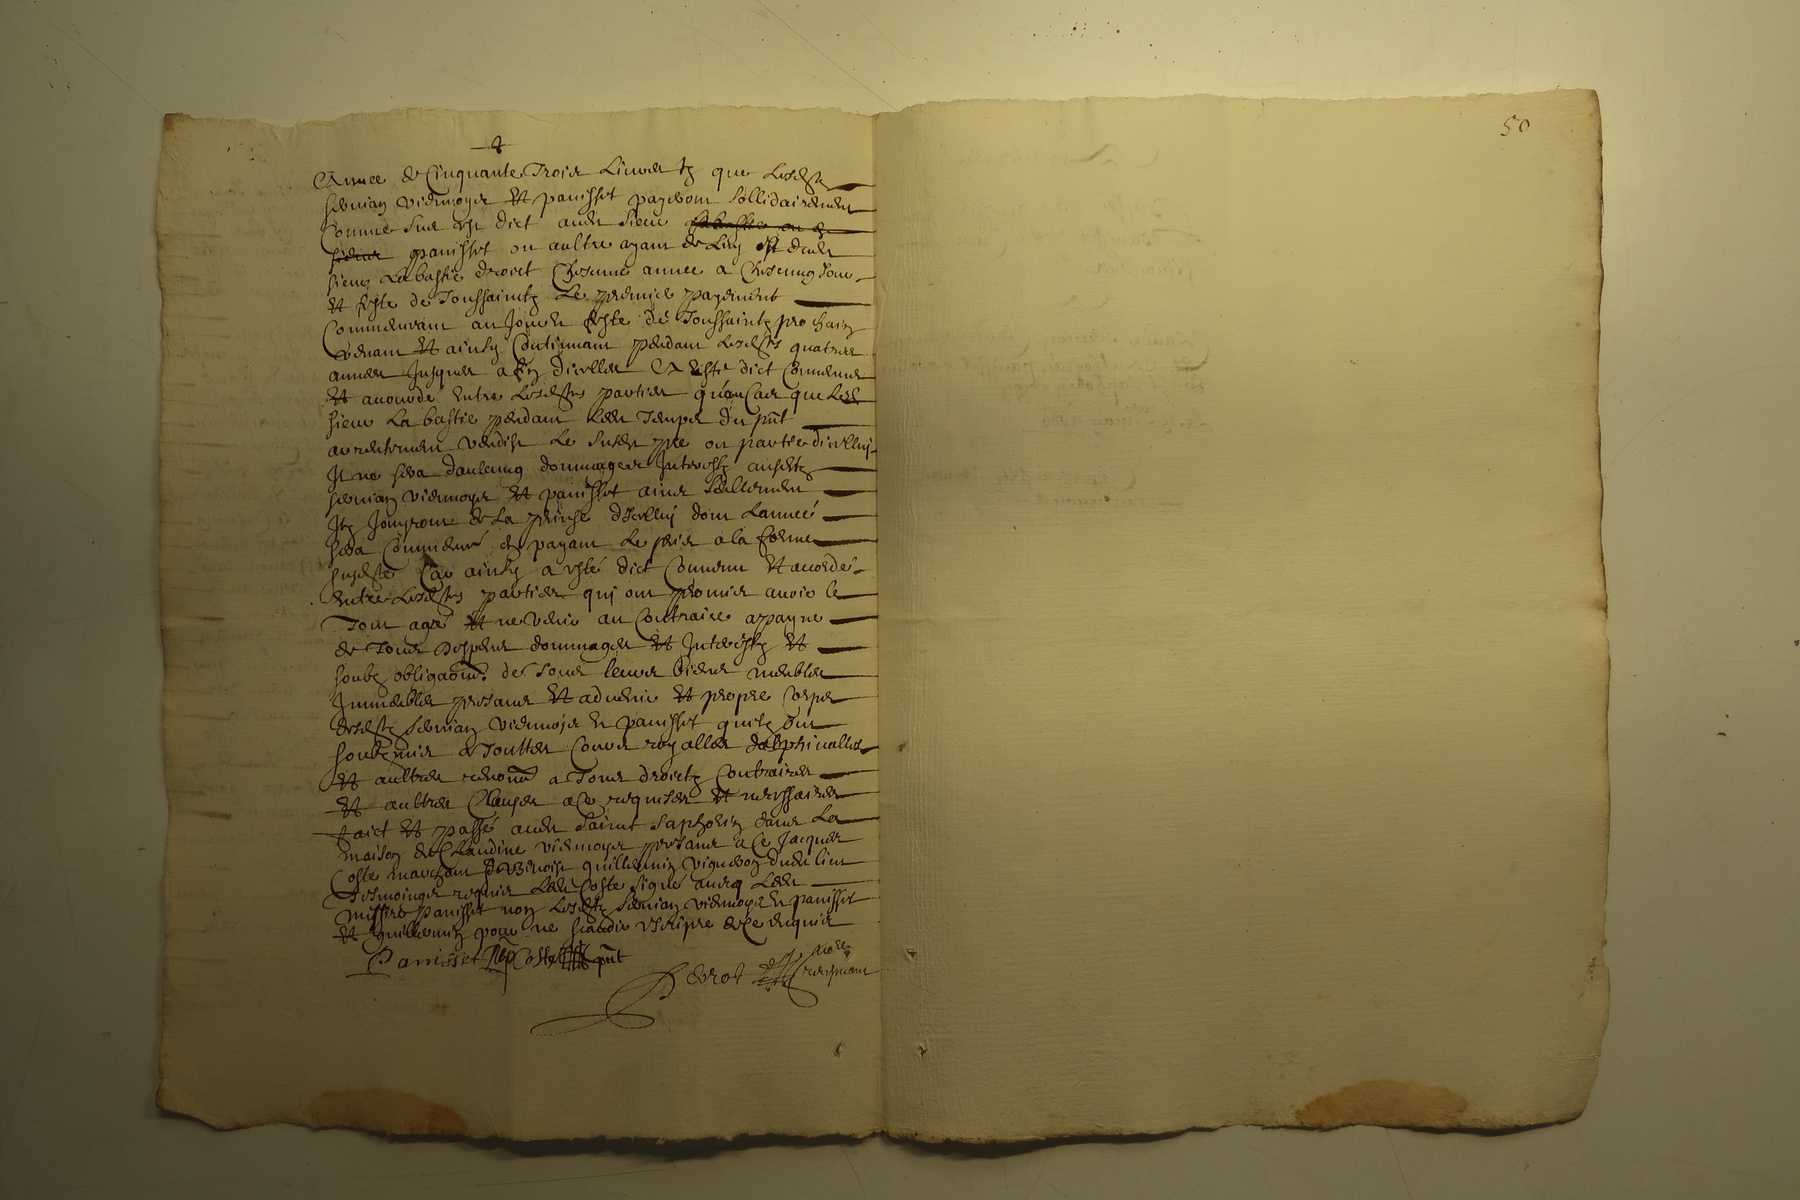 50
Annee de Cinquante Trois Livres tz que Lesdtz
sernian viermoyer Et panisset payeront sollidairement
Comme sus est dict audt sieur
panisset ou aultre ayant de Luy dudt
sieur Labastie droict Chescune annee a Chescung Jour
Et feste de Toussainctz Le premier payement
Commencant au Jour Et feste de Toussainctz prochain
venant Et ainsy Continuant pendant Lesdtes quatre
annees Jusques a fin dicelles A Esté dict Convenu
Et accordé Entre Lesdtes parties quau Cas que Ledt
sieur Labastie pendant Ledt Temps du pnt
arrentement vendist Le susdt pre ou partie dicelluy
Il ne sera daulcung dommages Interestz ausdtz
sernian viermoyer Et panisset ains seullement
Itz Jouyront de La prinse dIcelluy dont Lannee
sera Commencé en payant Le prix a la forme
susdte Car ainsy a esté dict Convenu Et accordé
Entre Lesdtes parties qui ont promis avoir le
Tout agré Et ne venir au Contraire a payne
de Tous despens dommages Et Interestz Et
soubz obligaons de Tous leurs biens meubles
Immeubles presans Et advenir Et propre Corps
desdtz sernian viermoyer Et panisset quitz ont
soubzmis a Touttes Cours royalles dalphinalles
Et aultres renoncé a Tous droictz Contraires
Et aultres Clauses a Ce requises Et necessaires
faict Et passé audt saint saphorin dans La
maison de Claudine viermoyer presans a Ce Jacques
Coste marchant Et Benoist guillermin vigneron dudt lieu
Tesmoings requis Ledt Coste signé avecq Ledt
missire panisset non Lesdtz sernian viermoyer Et panisset
Et guillermin pour ne scavoir escripre de Ce requis
Panisset Coste pnt
recepvant